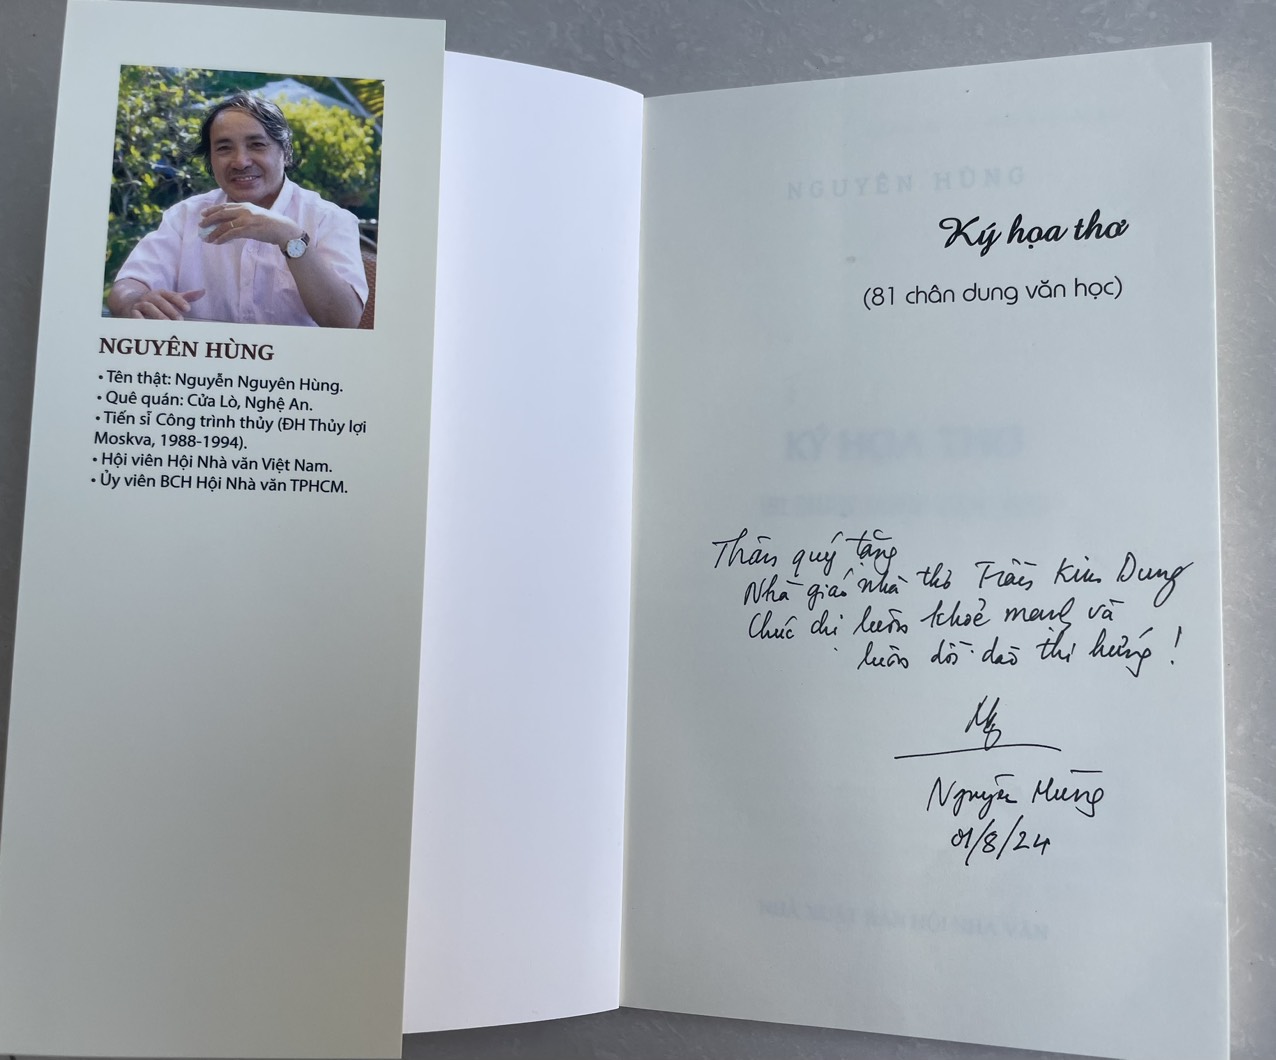 NGUYÊN HÙNG
• Tên thật: Nguyễn Nguyên Hùng.
• Quê quán: Cửa Lò, Nghệ An.
• Tiến sĩ Công trình thủy (ĐH Thủy lợi
Moskva, 1988-1994).
• Hội viên Hội Nhà văn Việt Nam.
• Ủy viên BCH Hội Nhà văn TPHCM.
NGUYÊN HÙNG
Ký họa thơ
(81 chân dung văn học)
KÝ HỌA THƠ
Thân quý tặng
Nhà giáo nhà thơ Trần Kim Dung
Chúc chị luôn khỏe mạnh và
luôn dồi dào thi hứng!
Nguyên Hùng
01/8/24